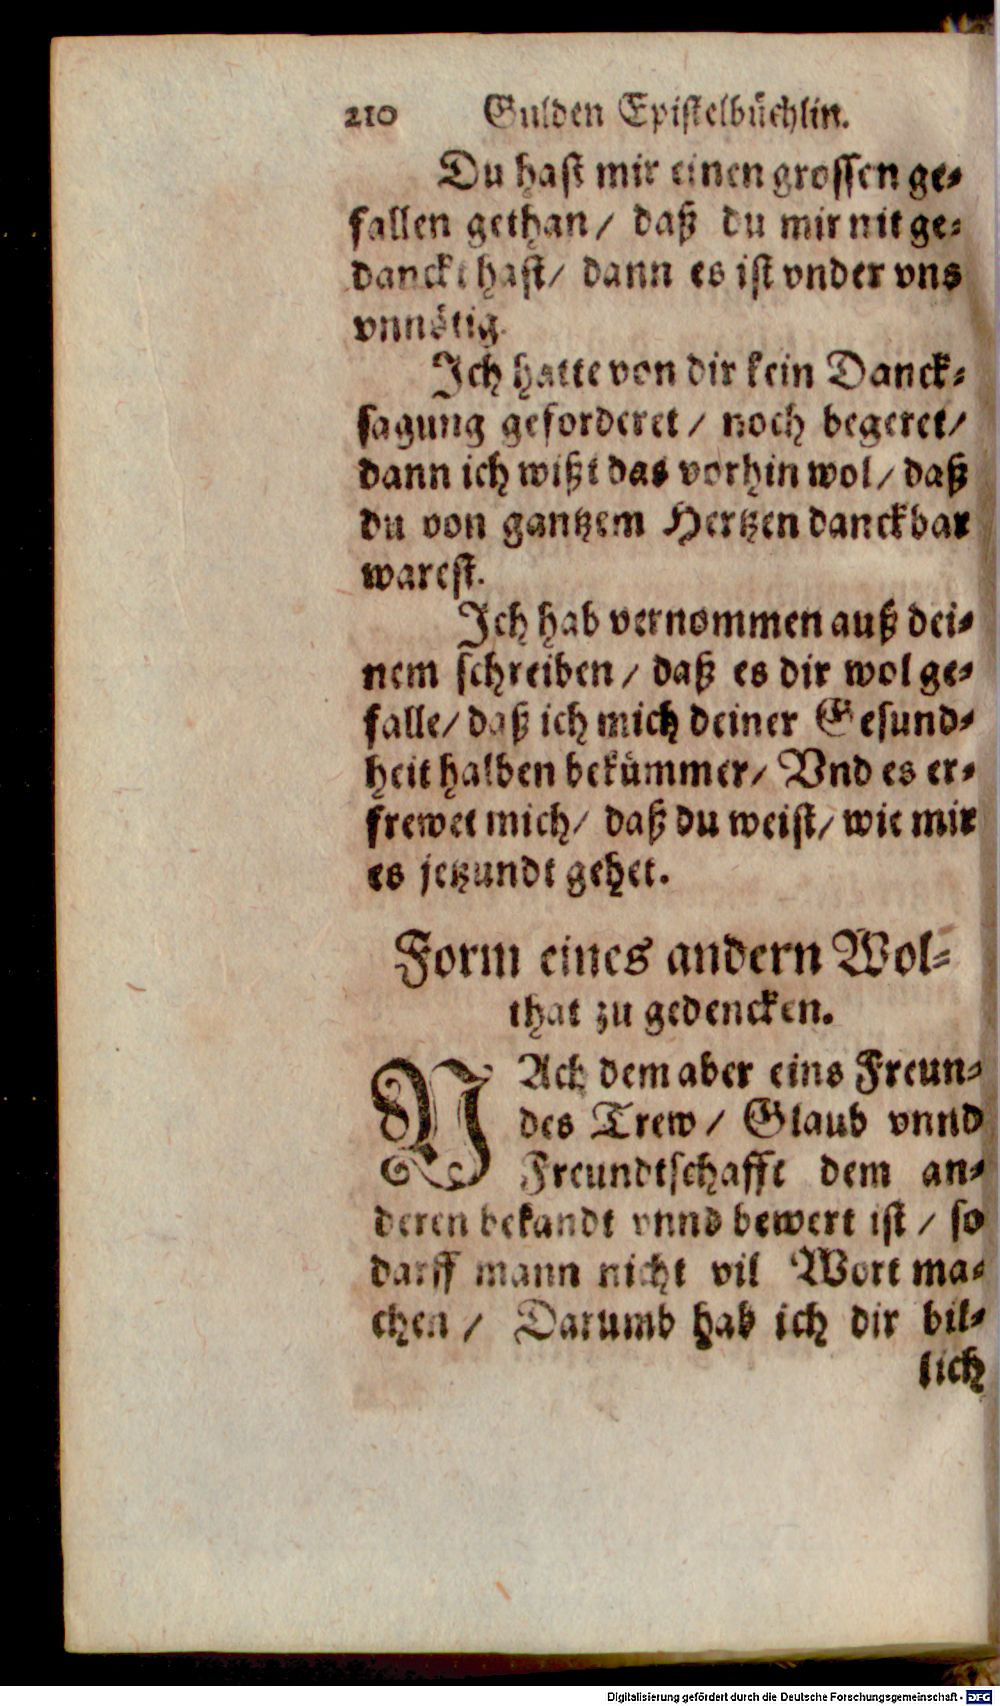 210 Gulden Epistelbüchlin.
Du hast mir einen grossen ge-
fallen gethan / daß du mir nit ge-
danckt hast / dann es ist vnder vns
vnnötig.
Ich hatte von dir kein Danck-
sagung geforderet / noch begeret /
dann ich wißt das vorhin wol / daß
du von gantzem Hertzen danckbar
warest.
Ich hab vernommen auß dei-
nem schreiben / daß es dir wol ge-
falle / daß ich mich deiner Gesund-
heit halben bekümmer / Vnd es er-
frewet mich / daß du weist / wie mir
es jetzundt gehet.
Form eines andern Wol-
that zu gedencken.
NAch dem aber eins Freun-
des Trew / Glaub vnnd
Freundtschafft dem an-
deren bekandt vnnd bewert ist / so
darff mann nicht vil Wort ma-
chen / Darumb hab ich dir bil-
lich
Digitalisierung gefördert durch die Deutsche Forschungsgemeinschaft - DFG